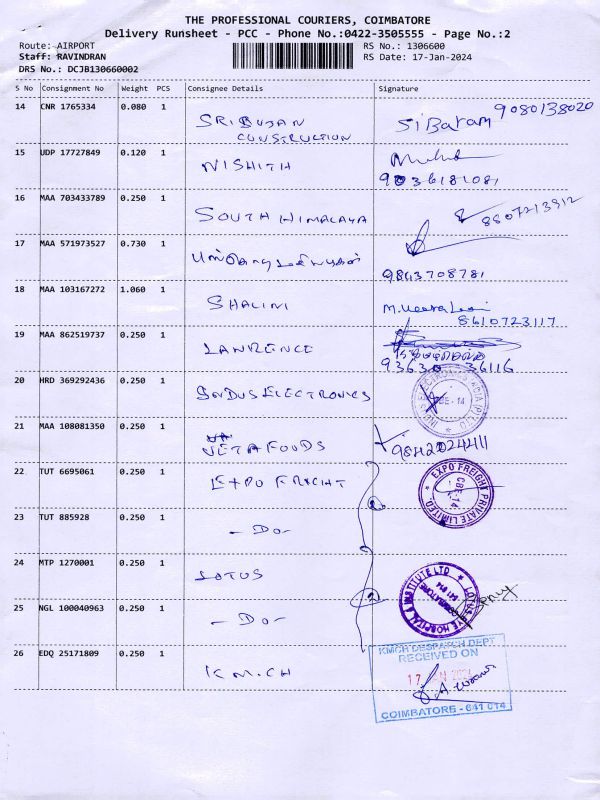 THE PROFESSIONAL COURIERS, COIMBATORE
Delivery Runsheet - PCC - Phone No.:0422-3505555 - Page No.:2
Route: AIRPORT
RS No.: 1306600
Staff: RAVINDRAN
RS Date: 17-Jan-2024
DRS No.: DCJB130660002
S No Consignment No Weight PCS Consignee Details Signature
14 CNR 1765334 0.080 1 SRI BUJAN CONSTRUCTION SiBaram 9080138020
15 UDP 17727849 0.120 1 NISHITH 9036181081
16 MAA 703433789 0.250 1 SOUTH HIMALAYA 8807213912
17 MAA 571973527 0.730 1 9843708781
18 MAA 103167272 1.060 1 SHALINI 8610723117
19 MAA 862519737 0.250 1 LAWRENCE 93630 36116
20 HRD 369292436 0.250 1 INDUS ELECTRONICS
CBE-14
21 MAA 108081350 0.250 1 VETA FOODS 9842024411
22 TUT 6695061 0.250 1 EXPO FREIGHT
EXPO FREIGHT PRIVATE LIMITED
CBE-14
23 TUT 885928 0.250 1 -Do-
24 MTP 1270001 0.250 1 LOTUS
LOTUS EYE HOSPITAL & INSTITUTE LTD
COIMBATORE
641 014
25 NGL 100040963 0.250 1 -Do-
26 EDQ 25171809 0.250 1 K.M.CH
KMCH DESPATCH DEPT
RECEIVED ON
17 JAN 2024
COIMBATORE - 641 014